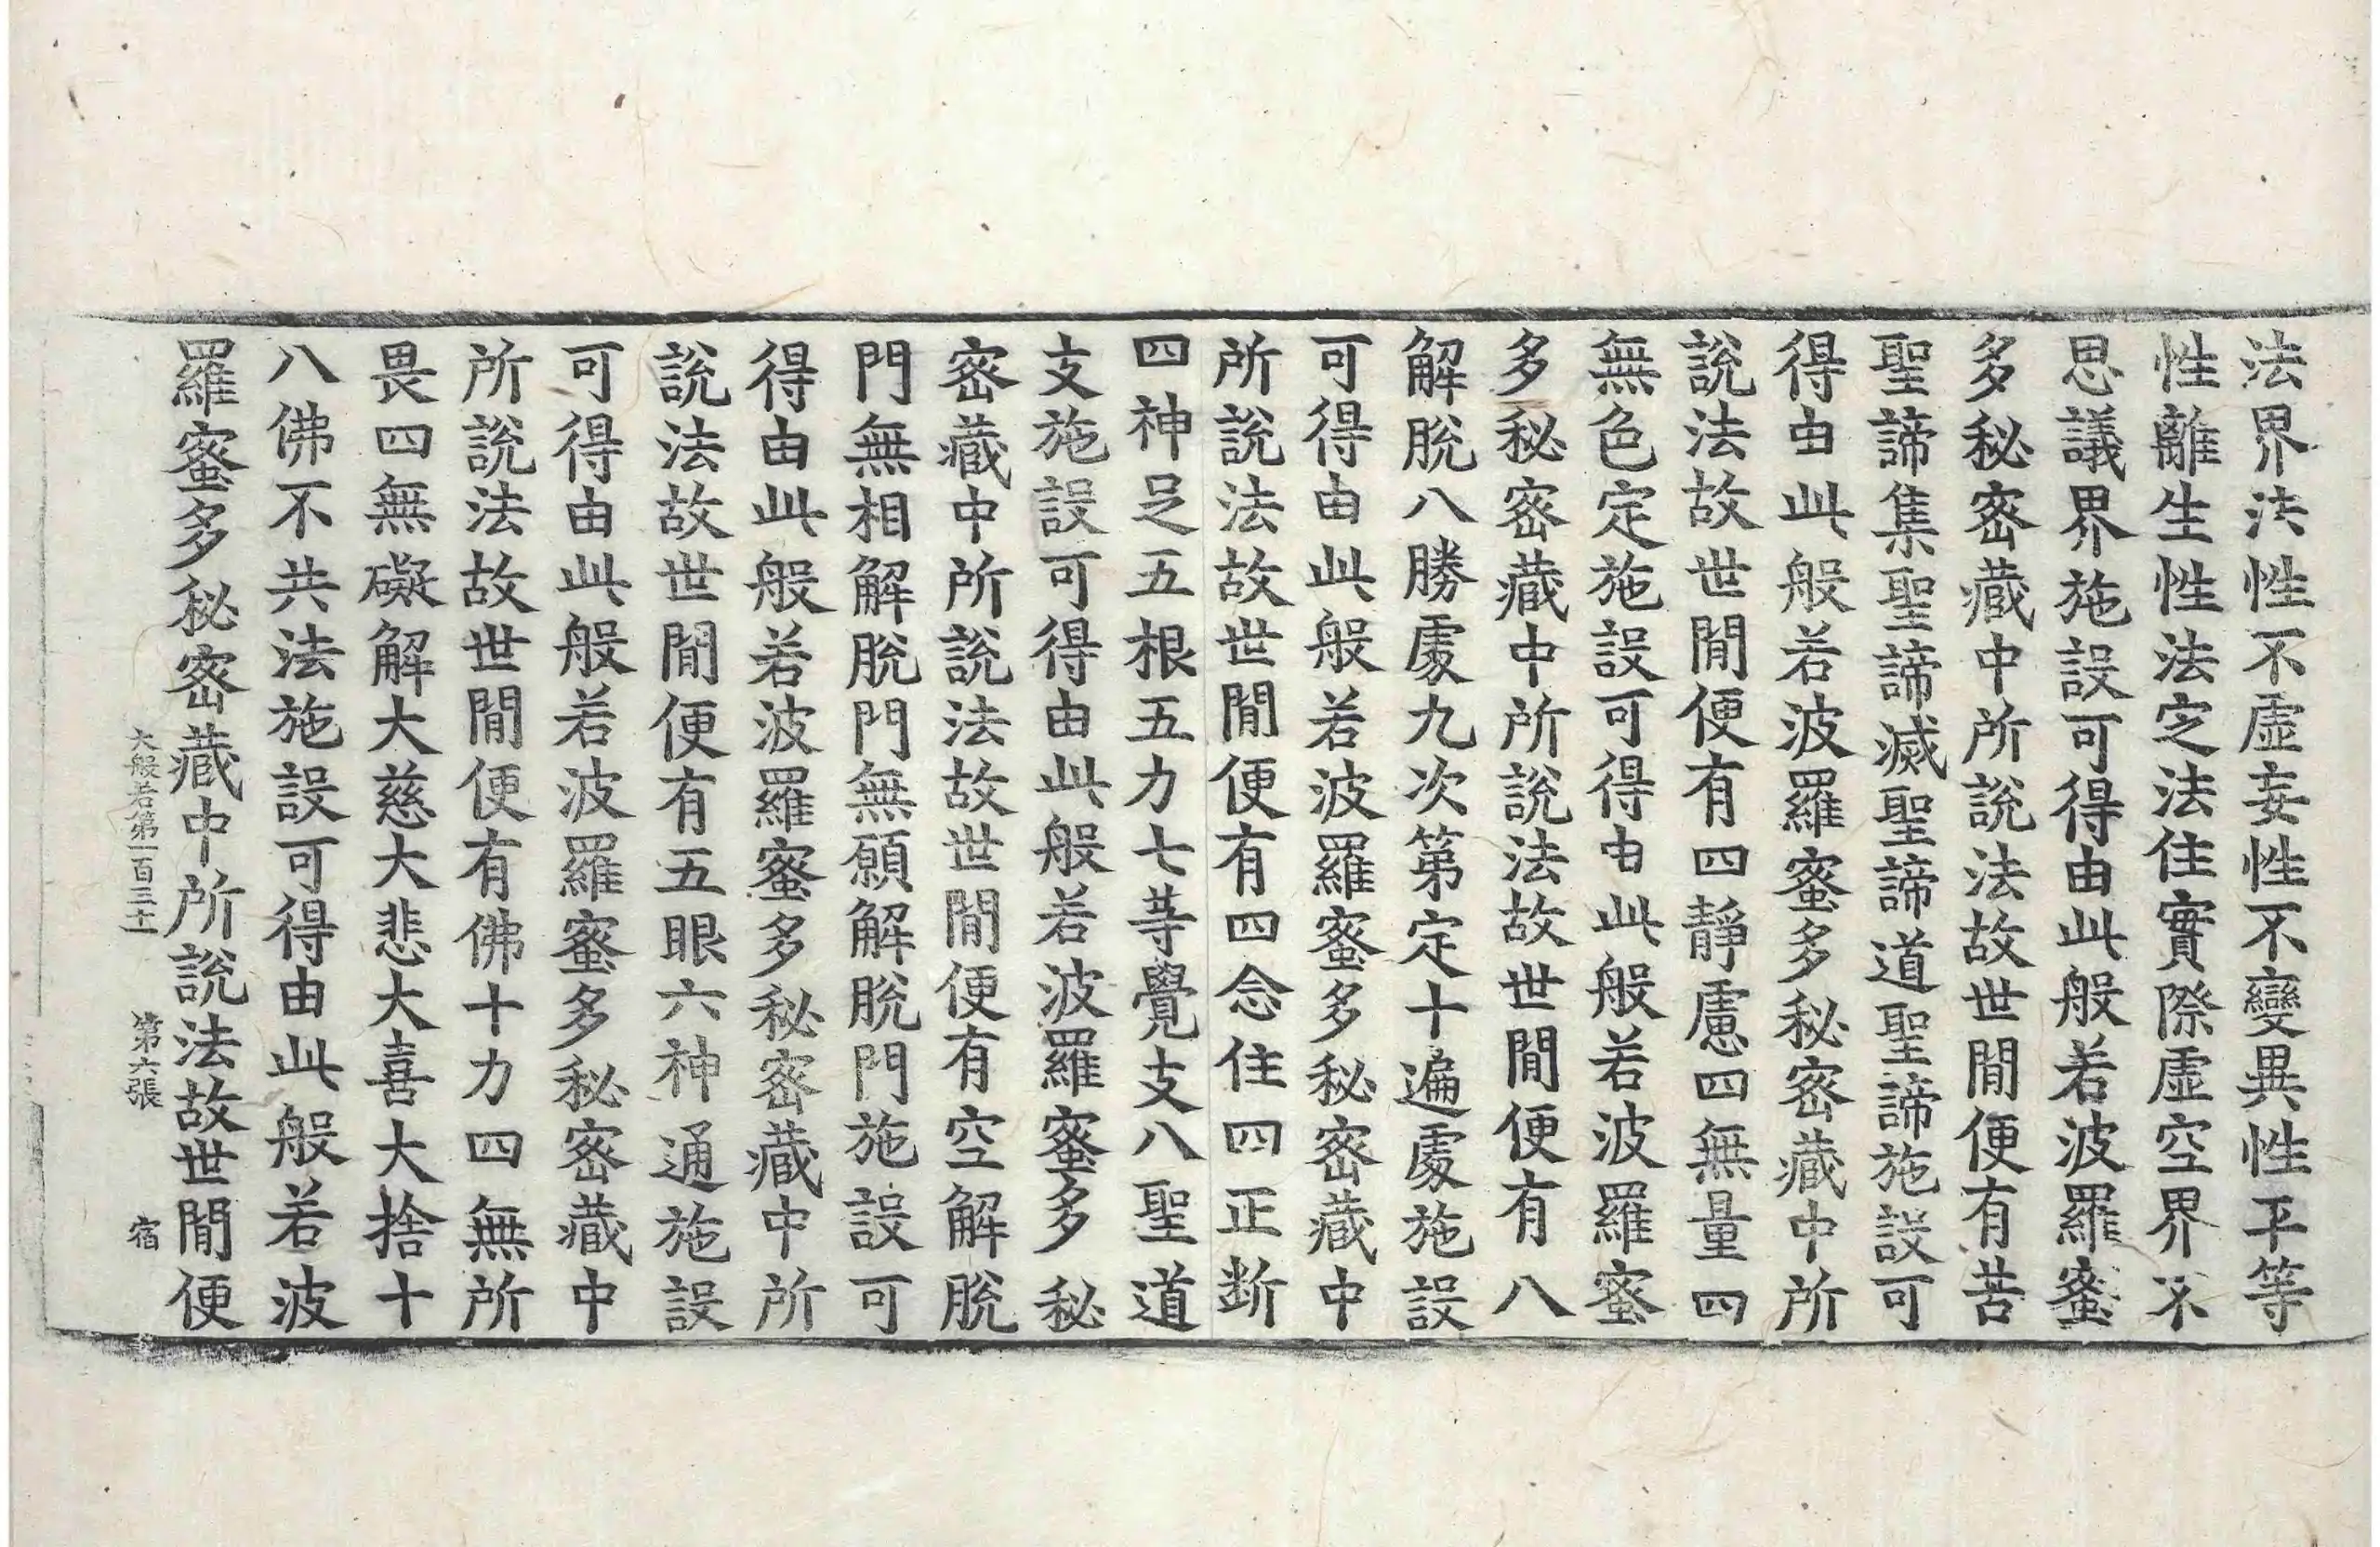 法界法性不虛妄性不變異性平等
性離生性法定法住實際虛空界不
思議界施設可得由此般若波羅蜜
多秘密藏中所說法故世間便有苦
聖諦集聖諦滅聖諦道聖諦施設可
得由此般若波羅蜜多秘密藏中所
說法故世間便有四靜慮四無量四
無色定施設可得由此般若波羅蜜
多秘密藏中所說法故世間便有八
解脫八勝處九次第定十遍處施設
可得由此般若波羅蜜多秘密藏中
所說法故世間便有四念住四正斷
四神足五根五力七等覺支八聖道
支施設可得由此般若波羅蜜多秘
密藏中所說法故世間便有空解脫
門無相解脫門無願解脫門施設可
得由此般若波羅蜜多秘密藏中所
說法故世間便有五眼六神通施設
可得由此般若波羅蜜多秘密藏中
所說法故世間便有佛十力四無所
畏四無礙解大慈大悲大喜大捨十
八佛不共法施設可得由此般若波
羅蜜多秘密藏中所說法故世間便
大般若第一百三十 第六張 宿